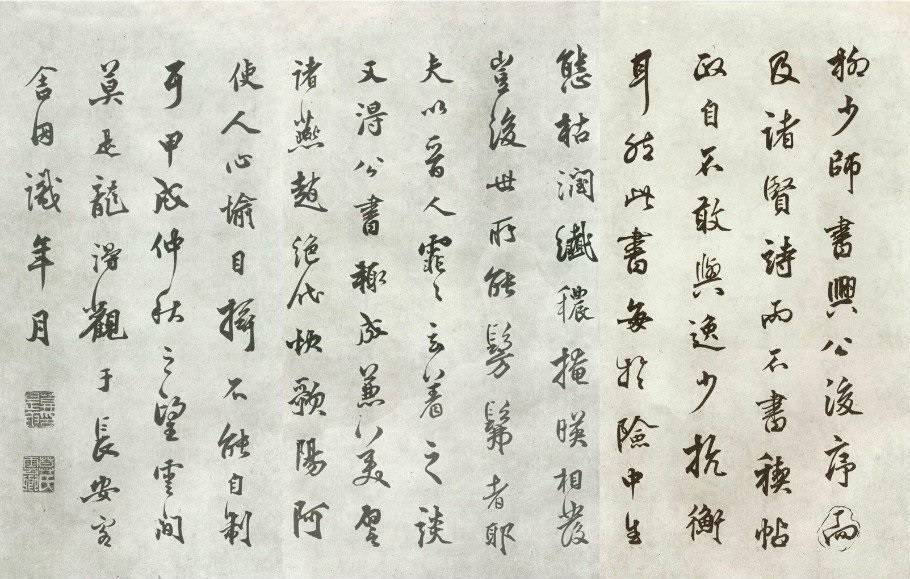 柳少師書興公後序而
及諸賢詩而不書禊帖
政自不敢與逸少抗衡
耳然此書每於險中生
態枯潤纖穠掩暎相發
豈後世所能髣髴者耶
夫以晉人霏〻玄着之談
又得公書輙成兼美譬
諸燕趙絕代歌陽阿
使人心愉目搖不能自制
耳甲戌仲秋之望雲間
莫是龍得觀于長安客
舍因識年月